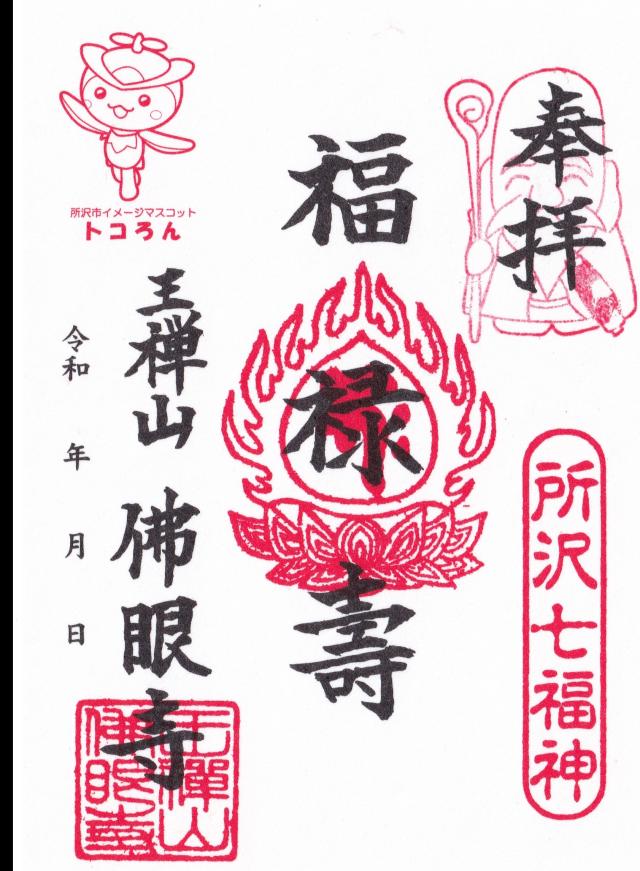 奉拝
所沢七福神
福禄壽
王禅山 佛眼寺
王禪山
佛眼寺
令和 年 月 日
所沢市イメージマスコット
トコろん